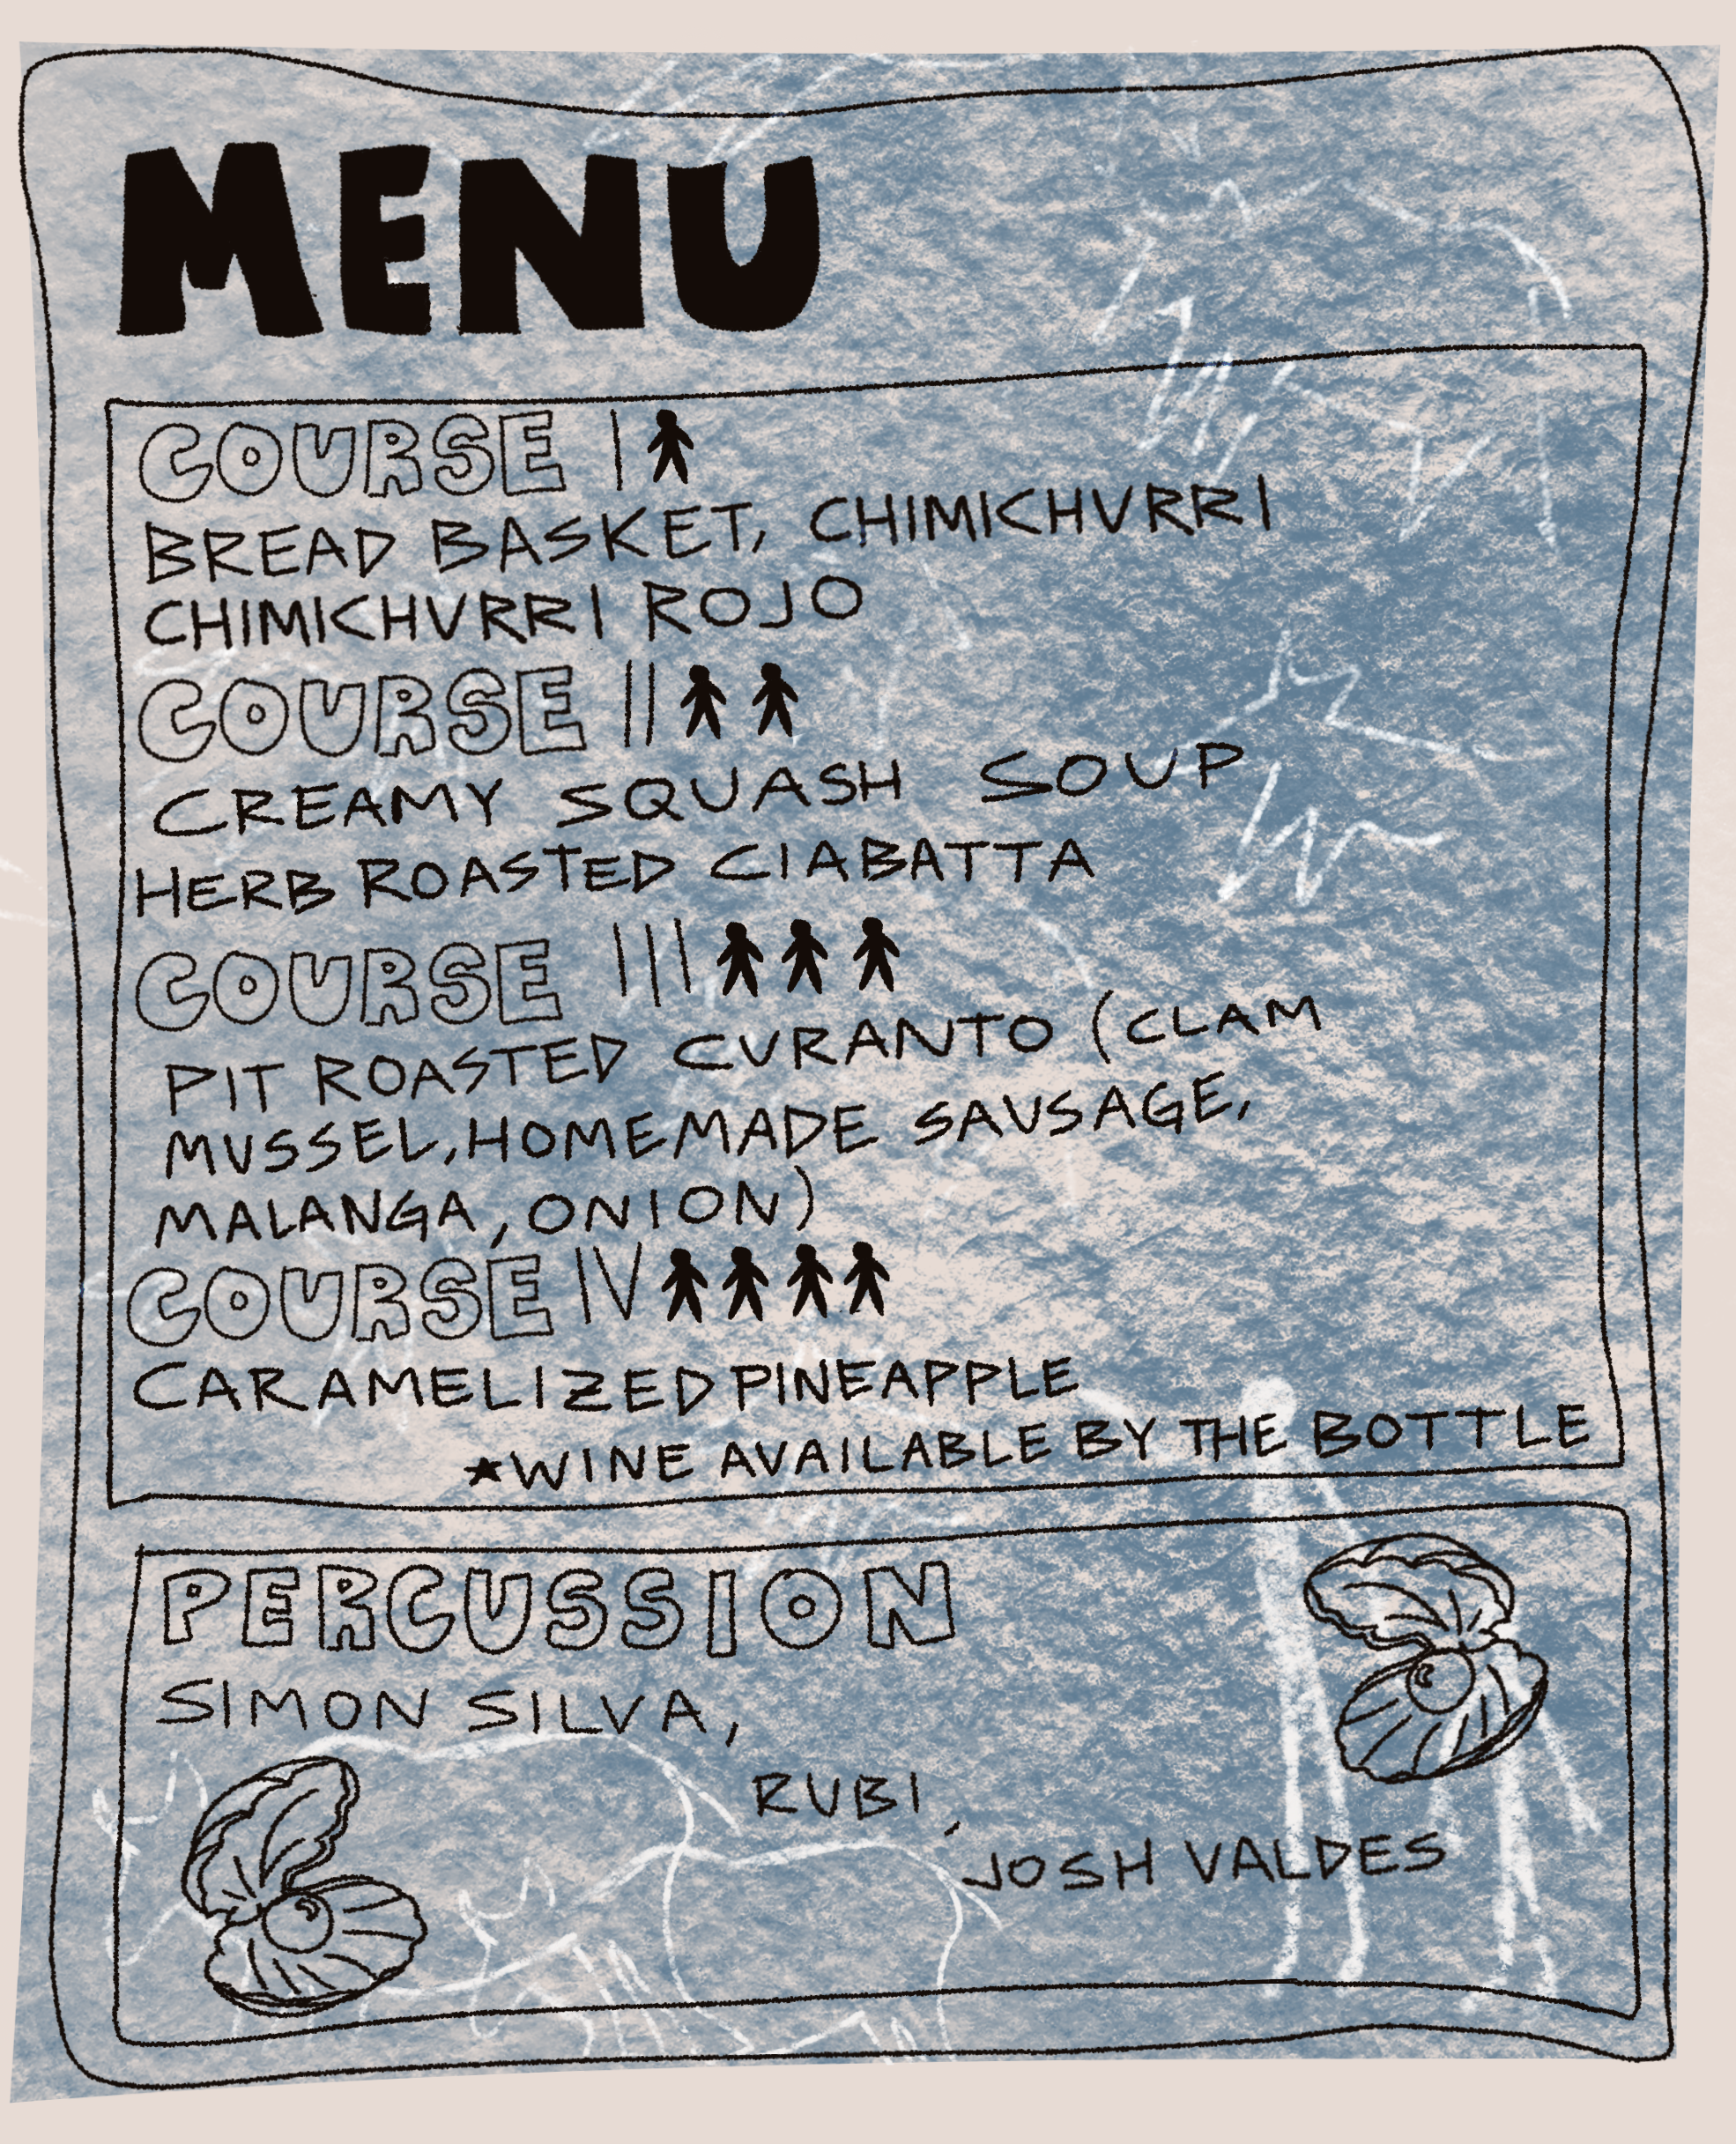 MENU
COURSE I
BREAD BASKET, CHIMICHURRI
CHIMICHURRI ROJO
COURSE II
CREAMY SQUASH SOUP
HERB ROASTED CIABATTA
COURSE III
PIT ROASTED CURANTO (CLAM
MUSSEL, HOMEMADE SAUSAGE,
MALANGA, ONION)
COURSE IV
CARAMELIZED PINEAPPLE
*WINE AVAILABLE BY THE BOTTLE
PERCUSSION
SIMON SILVA,
RUBI,
JOSH VALDES